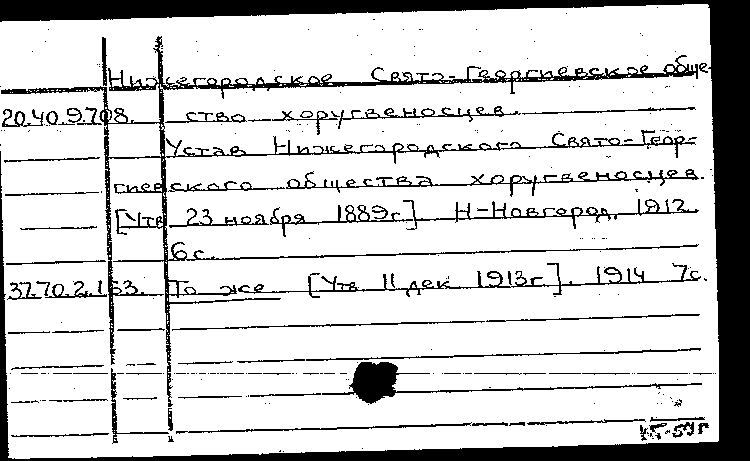 Нижегородское Свято-Георгиевское обще-
20.40.9.708. ство хоругвеносцев.
Устав Нижегородского Свято-Геор-
гиевского общества хоругвеносцев.
[Утв 23 ноября 1889г.]. Н-Новгород, 1912.
6 с.
37.70.2.153. То же [Утв. 11 дек 1913г.]. 1914 7с.